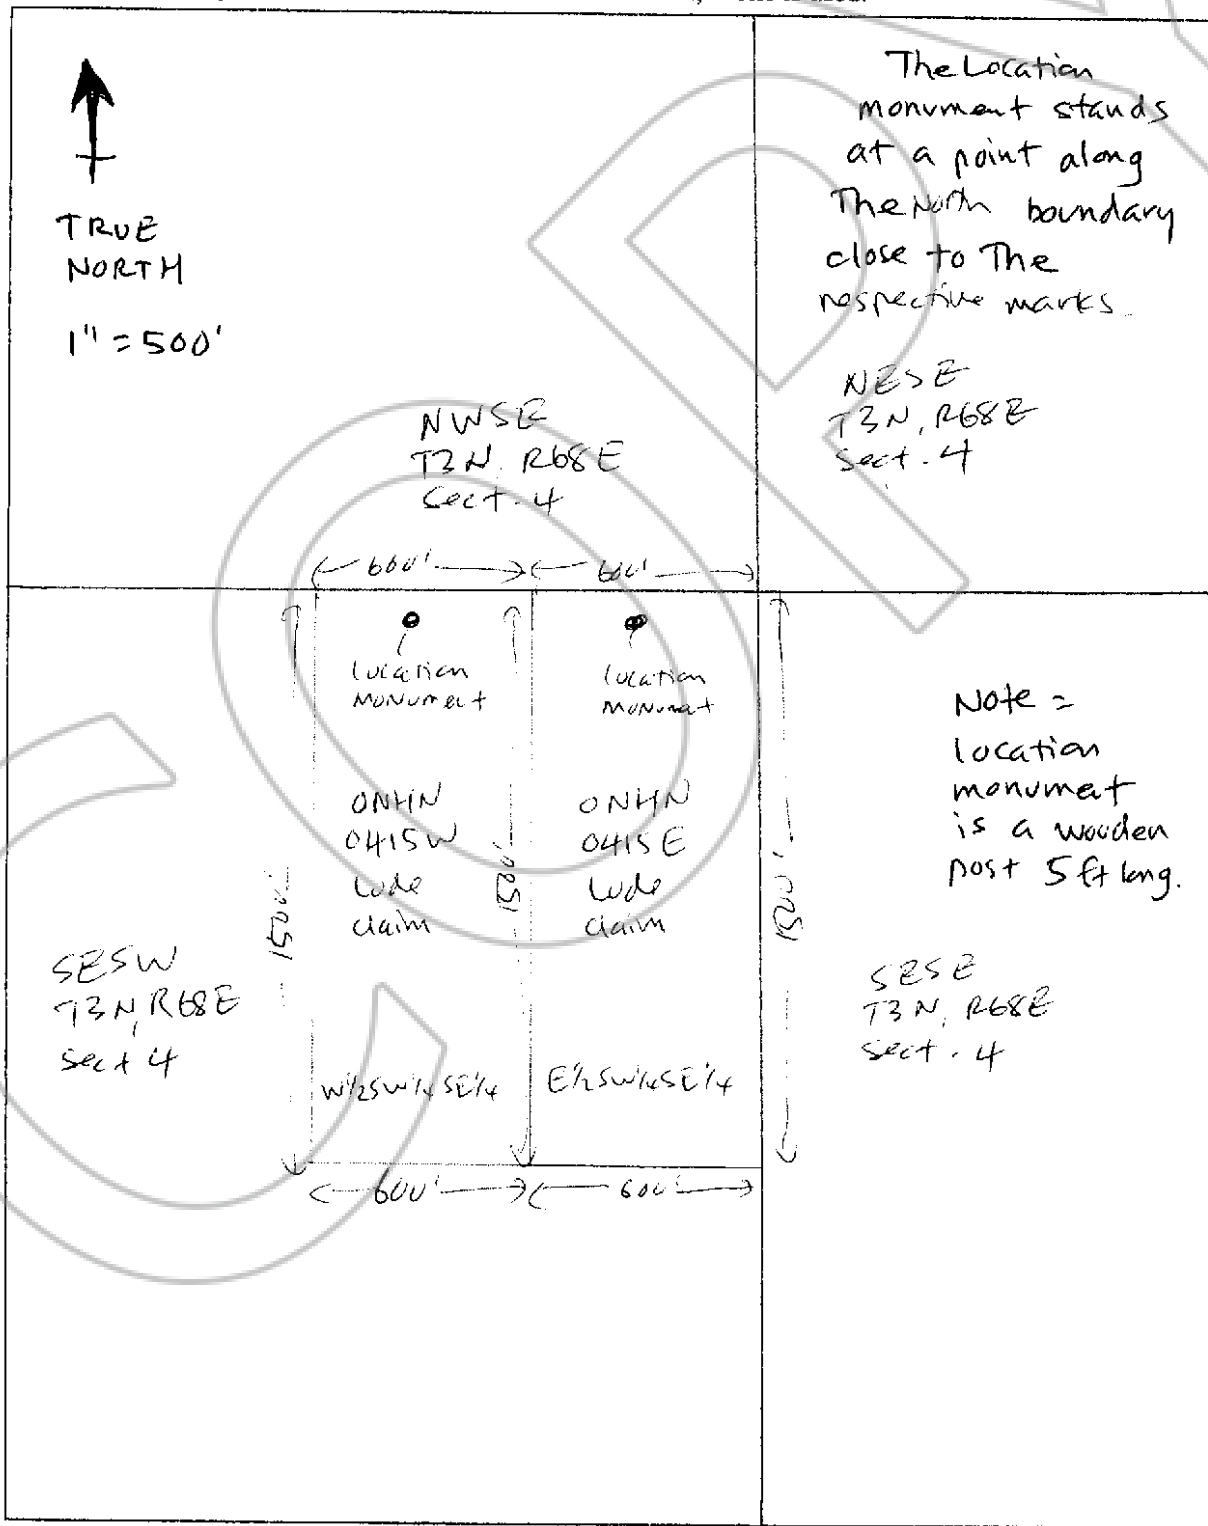 TRUE
NORTH
1" = 500'
The Location
monument stands
at a point along
The North boundary
close to The
respective marks.
NWSE
T3N, R68E
Sect. 4
NESE
T3N, R68E
Sect. 4
600' 600'
location
Monument
location
Monumet
ONHN
0415W
Lode
claim
ONHN
0415E
Lode
claim
1500'
1500'
1500'
Note =
location
monumet
is a wooden
post 5 ft long.
SESW
T3N, R68E
Sect 4
SESE
T3N, R68E
Sect. 4
W1/2SW1/4SE1/4
E1/2SW1/4SE1/4
600' 600'
COPY